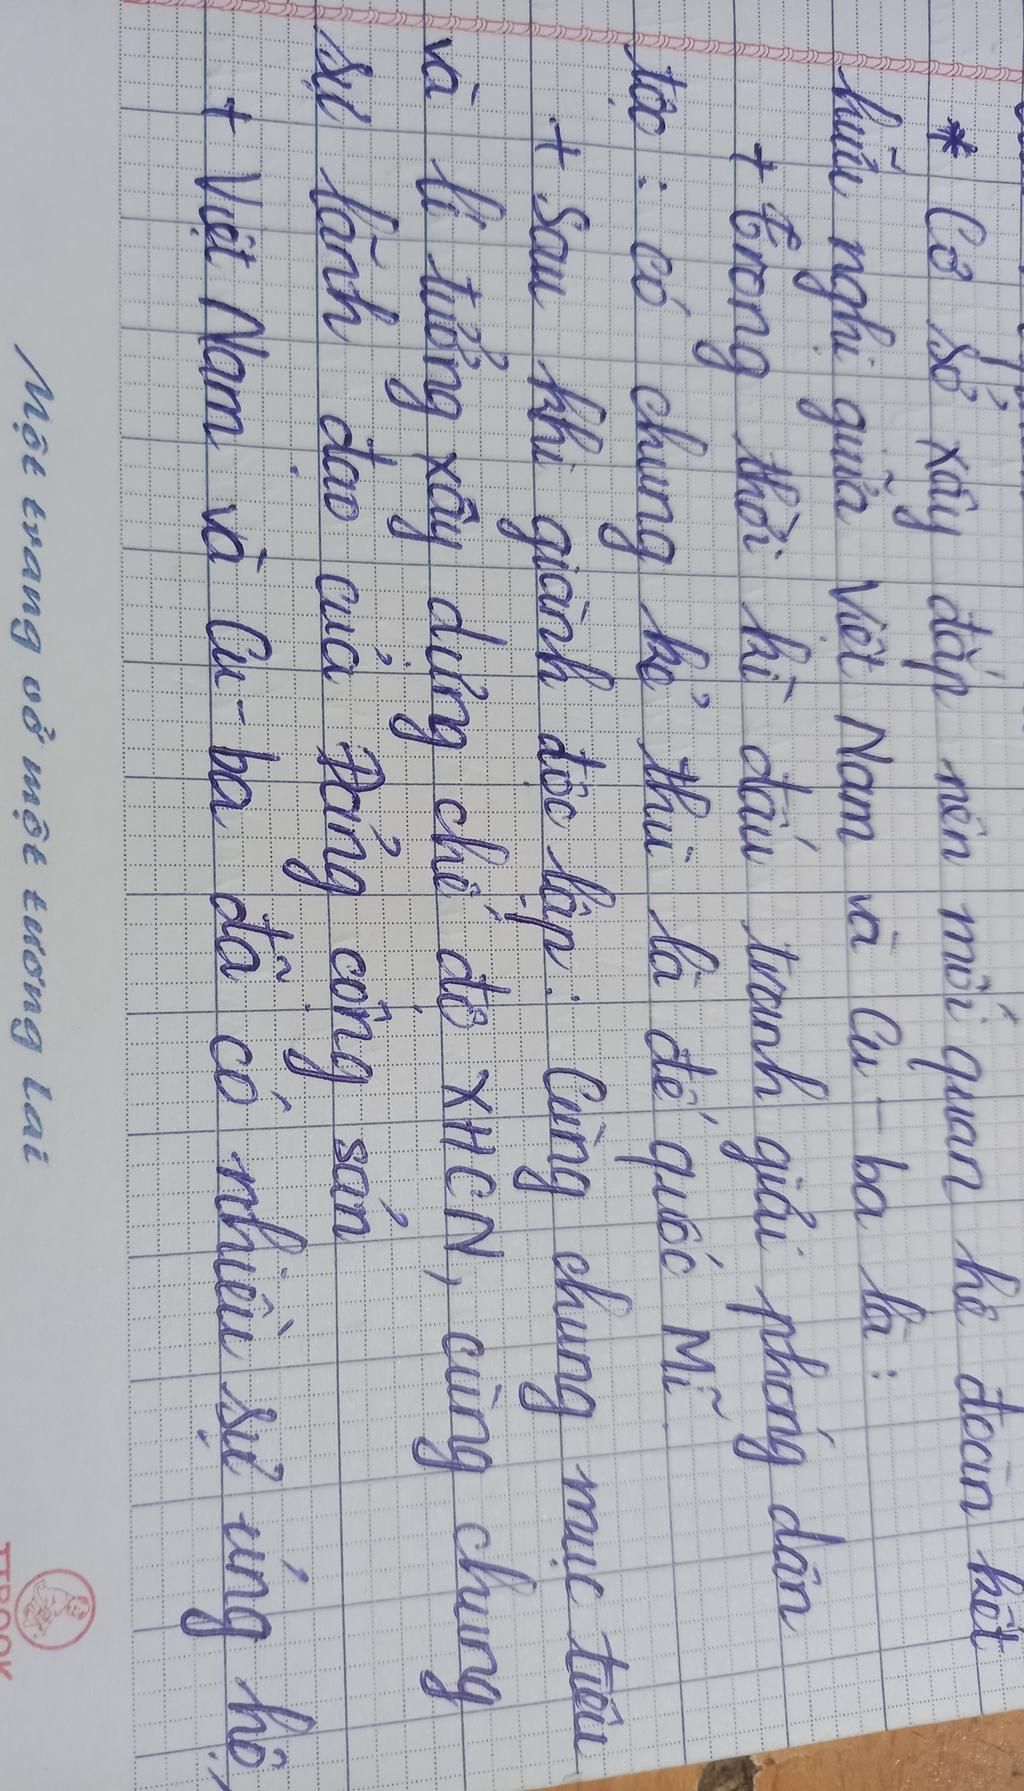 * Cơ sở xây đắp nên mối quan hệ đoàn kết
hữu nghị giữa Việt Nam và Cu-ba là:
+ trong thời kì đấu tranh giải phóng dân
tộc: có chung kẻ thù là đế quốc Mĩ.
+ Sau khi giành độc lập: Cùng chung mục tiêu
và lí tưởng xây dựng chế độ XHCN, cùng chung
sự lãnh đạo của Đảng cộng sản
+ Việt Nam và Cu-ba đã có nhiều sự ủng hộ,
Một trang vở một tương lai